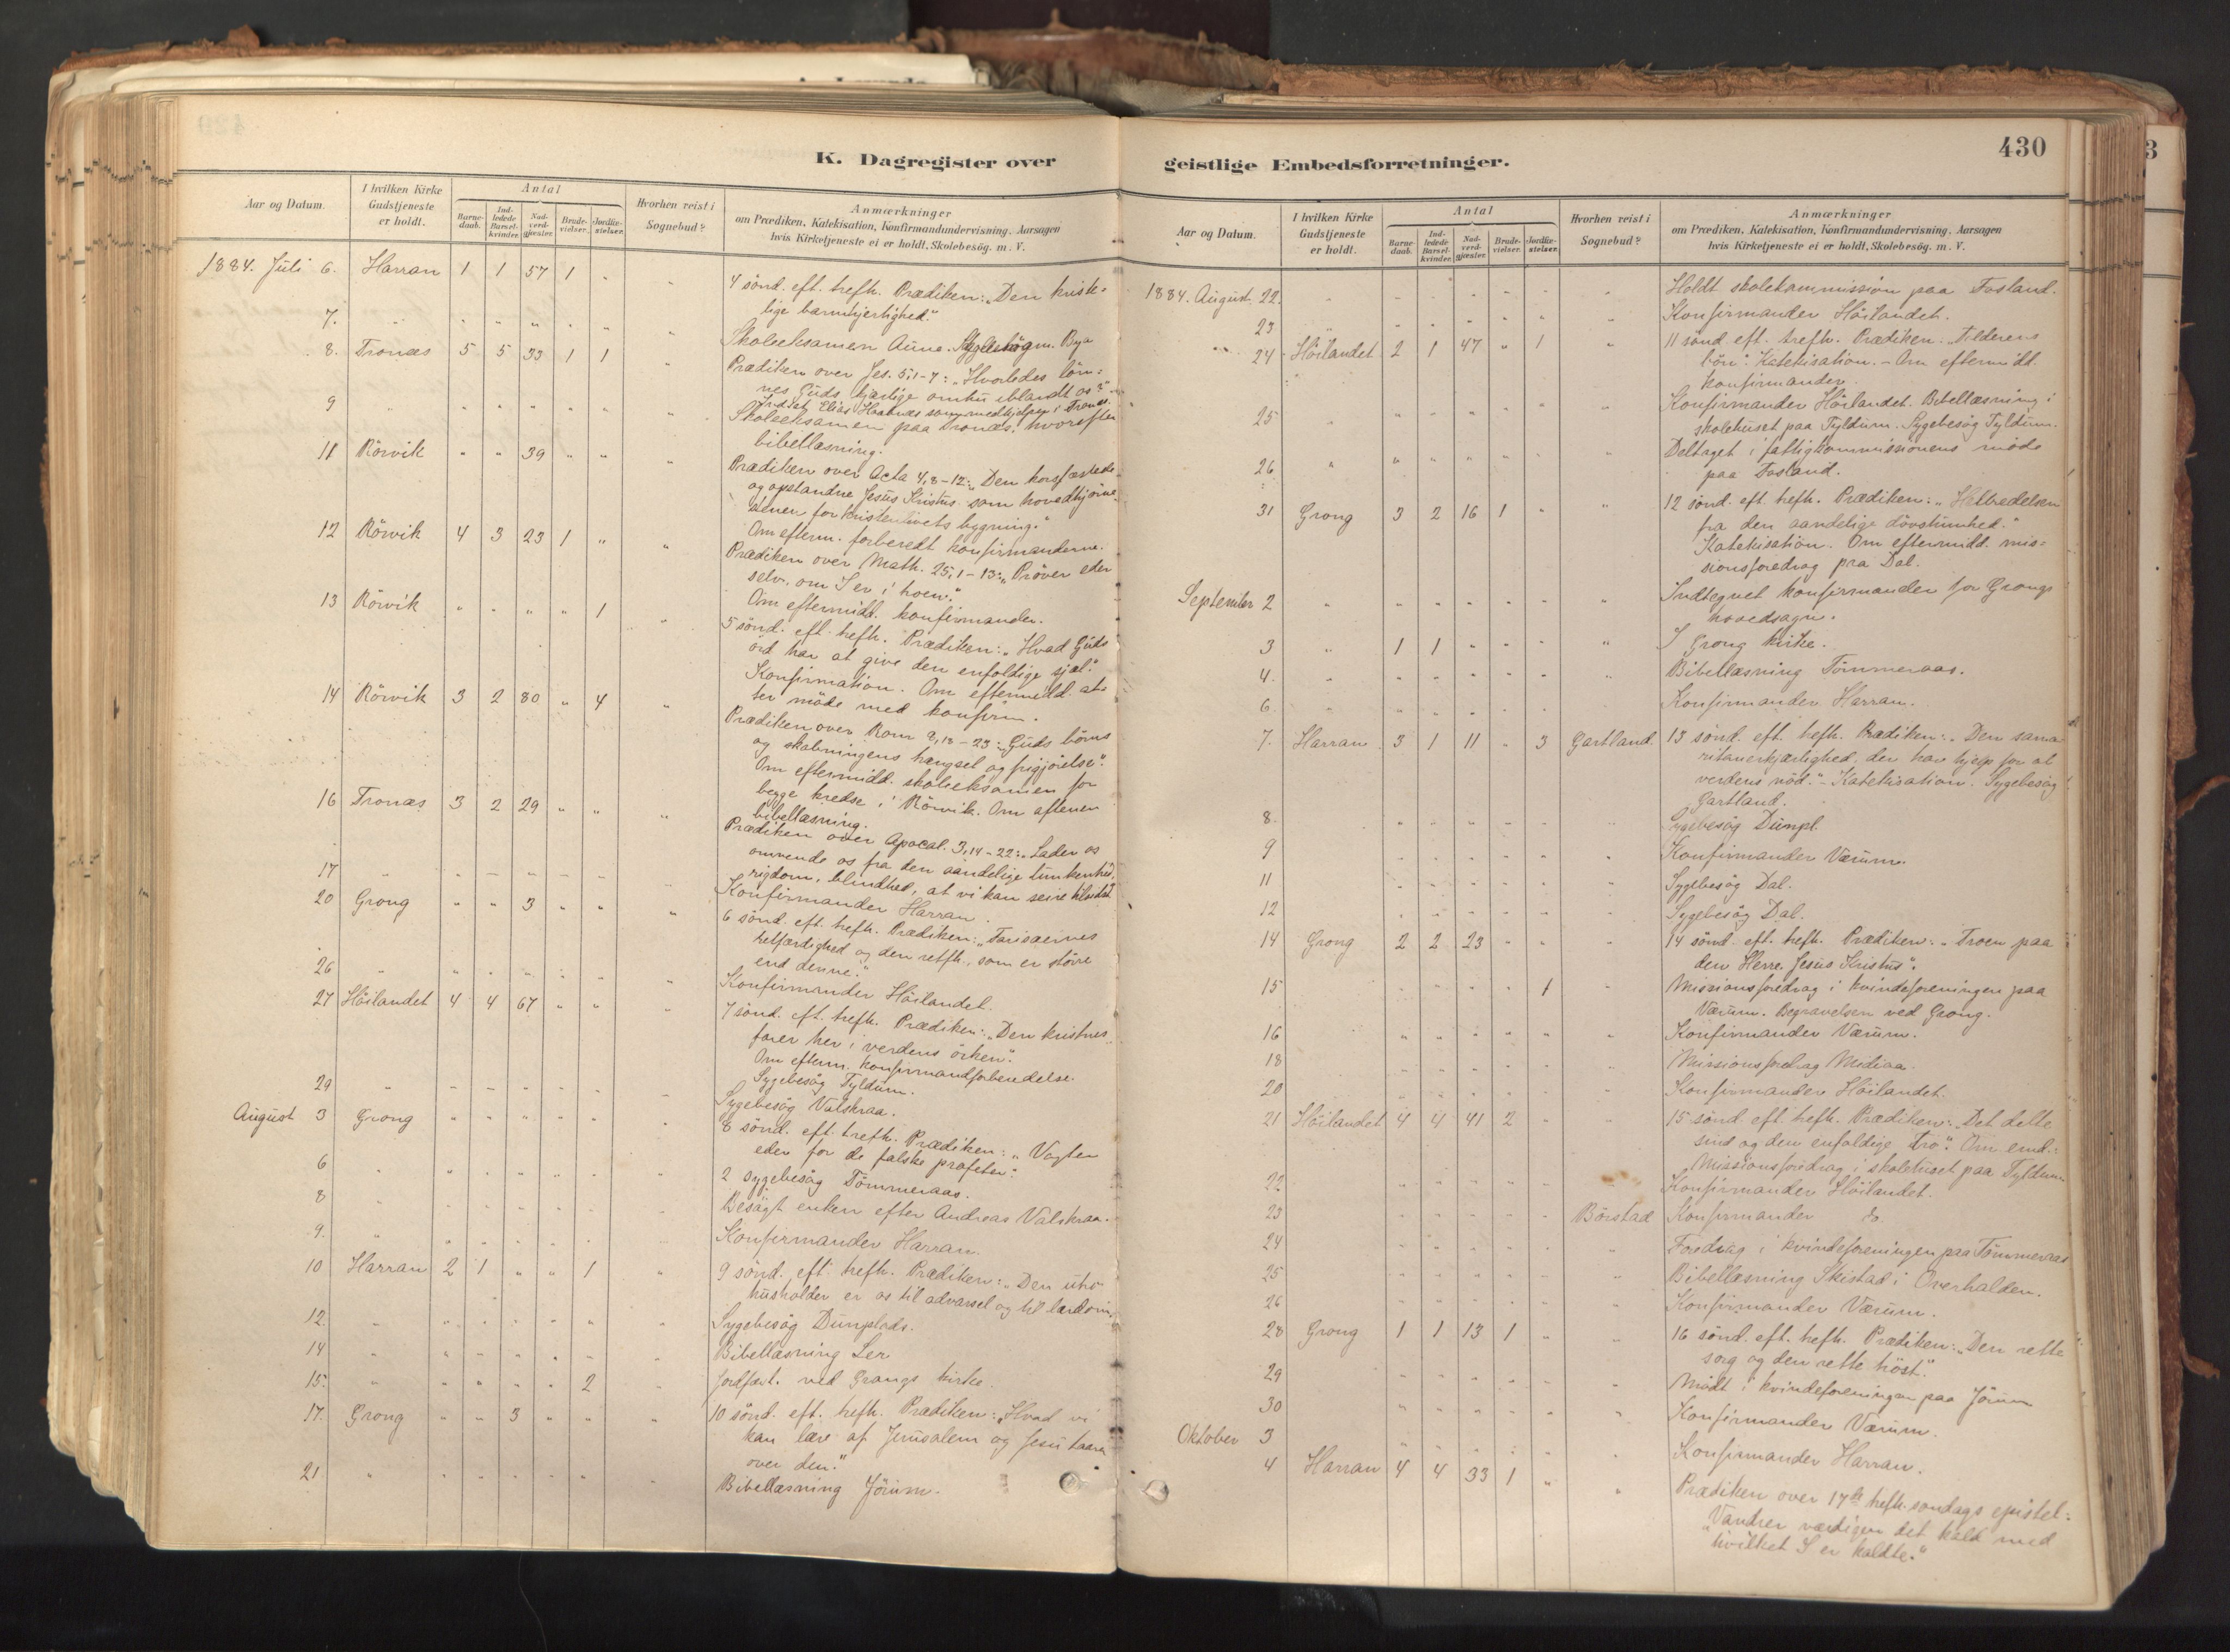 K. Dagregister over
Aar og Datum.
I hvilken Kirke Gudstjeneste er holdt.
Antal
Barne-daab.
Ind-ledede Barsel-kvinder.
Nad-verd-gjæster.
Brude-vielser.
Jordfæ-stelser.
Hvorhen reist i Sognebud?
Anmærkninger
om Prædiken, Katekisation, Konfirmandundervisning, Aarsagen
hvis Kirketjeneste ei er holdt, Skolebesøg. m. V.
1884. Juli 6. Harran 1 1 57 1 " " 4 sönd. eft. trefh. Prædiken: "Den kriste=
lige barmhjertighed."
7. " " " " " " " Skoleeksamen Aune. Bya
8. Tronæs 5 5 33 1 1 " Prædiken over Jes. 5,1-7: "Hvorledes lön=
nes Guds kjærlige omhu iblandt os?"
9 " " " " " " " Skoleeksamen paa Tronæs, hvorefter
bibellæsning.
11 Rörvik " " 39 " " " Prædiken over Acta 4,8-12: "Den korsfæstede
og opstandne Jesus Kristus som hovedhjörne
stenen for kristenlivets bygning."
Om efterm. forberedt konfirmanderne.
12 Rörvik 4 3 23 1 " " Prædiken over Math. 25,1-13: "Pröver eder
selv, om I er i troen."
Om eftermidd. konfirmander.
13 Rörvik " " " " 1 " 5 sönd. eft. trefh. Prædiken: "Hvad Guds
ord har at give den enfoldige sjæl."
Konfirmation. Om eftermidd. at=
ter möde med konfirm.
14 Rörvik 3 2 80 " 4 " Prædiken over Rom 8,18-23: "Guds börns
og skabningens længsel og frigjörelse."
Om eftermidd. skoleeksamen for
begge kredse i Rörvik. Om aftenen
bibellæsning.
16 Tronæs 3 2 29 " " " Prædiken over Apocal. 3,14-22: "Lader os
omvende os fra den aandelige lunkenhed,
rigdom, blindhed, at vi kan seire tilsidst."
17 " " " " " " " Konfirmander Harran.
20 Grong " " 3 " " " 6 sönd. eft. trefh. Prædiken: "Farisæernes
retfærdighed og den retfh., som er större
end denne."
26 " " " " " " " Konfirmander Höilandet.
27 Höilandet 4 4 67 " " " 7 sönd. eft. trefh. Prædiken: "Den kristnes
farer her i verdens örken."
Om efterm. konfirmandforberedelse.
Sygebesög Tyldum.
29 " " " " " " " Sygebesög Valskraa.
August 3 Grong " " " " " " 8 sönd. eft. trefh. Prædiken: "Vogter
eder for de falske profeter."
6 " " " " " " " 2 sygebesög Tömmeraas.
8 " " " " " " " Besögt enken efter Andreas Valskraa.
9. " " " " " " " Konfirmander Harran.
10 Harran 2 1 " " 1 " 9 sönd. eft. trefh. Prædiken: "Den utro
husholder er os til advarsel og til lærdom."
12. " " " " " " " Sygebesög Dunplads.
14 " " " " " " " Bibellæsning Ler
15. " " " " " 2 " Jordfæst. ved Grongs kirke.
17. Grong " " 3 " " " 10 sönd. eft. trefh. Prædiken: "Hvad vi
kan lære af Jerusalem og Jesu taarer
over den."
21 " " " " " " " Bibellæsning Jörum.
geistlige Embedsforretninger.
430
Aar og Datum.
I hvilken Kirke Gudstjeneste er holdt.
Antal
Barne-daab.
Ind-ledede Barsel-kvinder.
Nad-verd-gjæster.
Brude-vielser.
Jordfæ-stelser.
Hvorhen reist i Sognebud?
Anmærkninger
om Prædiken, Katekisation, Konfirmandundervisning, Aarsagen
hvis Kirketjeneste ei er holdt, Skolebesøg. m. V.
1884. August 22. " " " " " " " Holdt skolekommission paa Fosland.
23 " " " " " " " Konfirmander Höilandet.
24 Höilandet 2 1 47 " 1 " 11 sönd. eft. trefh. Prædiken: "Tolderens
bön." Katekisation. - Om eftermidd.
konfirmander.
25 " " " " " " " Konfirmander Höilandet. Bibellæsning i
skolehuset paa Tyldum. Sygebesög Tyldum.
26 " " " " " " " Deltaget i fattigkommissionens möde
paa Fosland.
31 Grong 3 2 16 1 " " 12 sönd. eft. trefh. Prædiken: "Helbredelsen
fra den aandelige dövstumhed."
Katekisation. Om eftermidd. mis=
sionsforedrag paa Dal.
September 2 " " " " " " " Indtegnet konfirmander for Grongs
hovedsogn.
3 " 1 1 " " " " I Grong kirke.
4. " " " " " " " Bibellæsning Tömmeraas.
6. " " " " " " " Konfirmander Harran.
7. Harran 3 1 11 " 3 Gartland 13 sönd. eft. trefh. Prædiken: "Den sama
ritanerkjærlighed, der har hjelp for al
verdens nöd." - Katekisation. Sygebesög
Gartland.
8. " " " " " " Sygebesög Dunpl.
9 " " " " " " Konfirmander Værum.
11 " " " " " " Sygebesög Dal.
12 " " " " " " Sygebesög Dal.
14 Grong 2 2 23 " " " 14 sönd. eft. trefh. Prædiken: "Troen paa
den Herre Jesus Kristus".
15 " " " " 1 " Missionsforedrag i kvindeforeningen paa
Værum. Begravelsen ved Grong.
16 " " " " " " Konfirmander Værum.
18 " " " " " " Missionsforedrag Mediaa.
20 " " " " " " Konfirmander Höilandet.
21 Höilandet 4 4 41 2 " " 15 sönd. eft. trefh. Prædiken: "Det delte
sind og den enfoldige tro". Om emd.:
Missionsforedrag i skolehuset paa Tyldum
22 " " " " " " Konfirmander Höilandet.
23 " " " " " Börstad Konfirmander do
24 " " " " " " Foredrag i kvindeforeningen paa Tömmeraas
25 " " " " " " Bibellæsning Skistad i Overhalden.
26 " " " " " " Konfirmander Værum.
28 Grong 1 1 13 1 " " 16 sönd. eft. trefh. Prædiken: "Den rette
sorg og den rette tröst."
29 " " " " " " Mödt i kvindeforeningen paa Jörum
30 " " " " " " Konfirmander Værum.
Oktober 3 " " " " " " Konfirmander Harran.
4 Harran 4 4 33 1 " " Prædiken over 17de trefh. söndags epistel:
"Vandrer værdigen det kald med
hvilket I er kaldte."